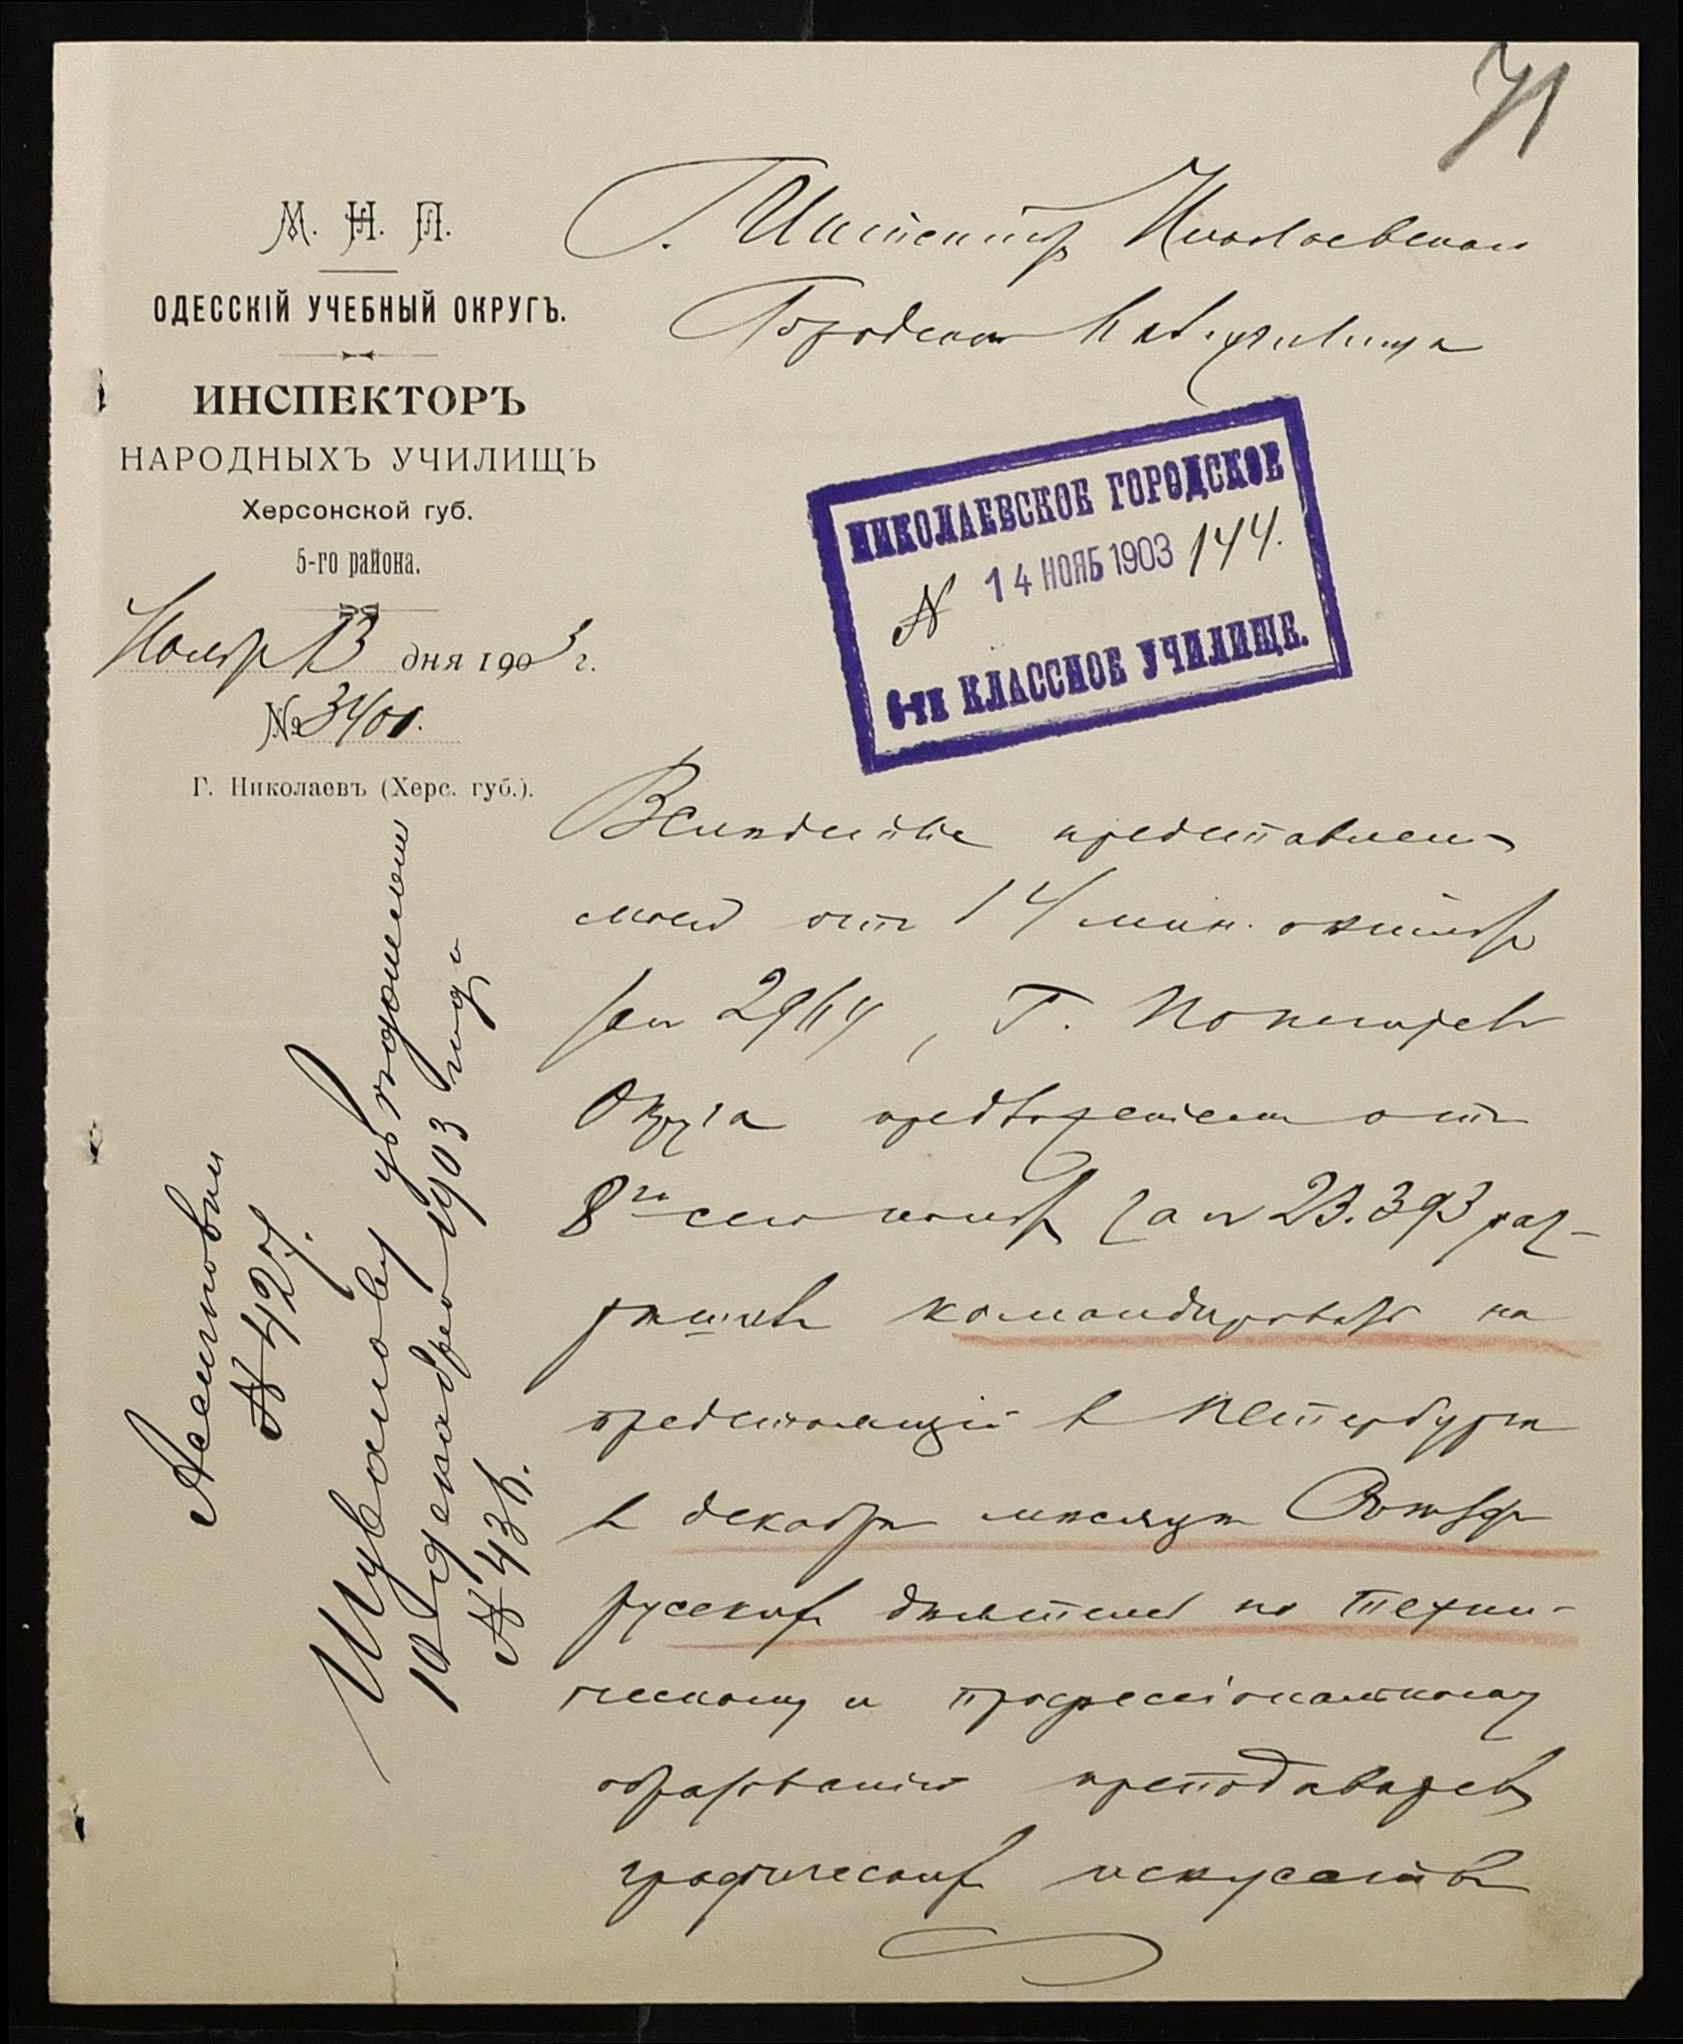 71
М. Н. П.
ОДЕССКІЙ УЧЕБНЫЙ ОКРУГЪ.
ИНСПЕКТОРЪ
НАРОДНЫХЪ УЧИЛИЩЪ
Херсонской губ.
5-го района.
Ноября 13 дня 1903 г.
№ 3400.
Г. Николаевъ (Херс. губ.).
Г. Инспектору Николаевскаго
Городского училища
НИКОЛАЕВСКОЕ ГОРОДСКОЕ
N 14 НОЯБ 1903 144.
6-ти КЛАССНОЕ УЧИЛИЩЕ.
Вслѣдствіе представленія
моего отъ 14 мин. октября
за № 2964, Г. Попечитель
Округа предложеніемъ отъ
8го сего ноября за № 23.393 раз-
рѣшилъ командировать на
предстоящій въ Петербургѣ
въ декабрѣ мѣсяцѣ Съѣздъ
русскихъ дѣятелей по техни-
ческому и профессіональному
образованію преподавателей
графическихъ искусствъ
N 427.
Шувалову увѣдомленіе
10 декабря 1903 года
N 436.